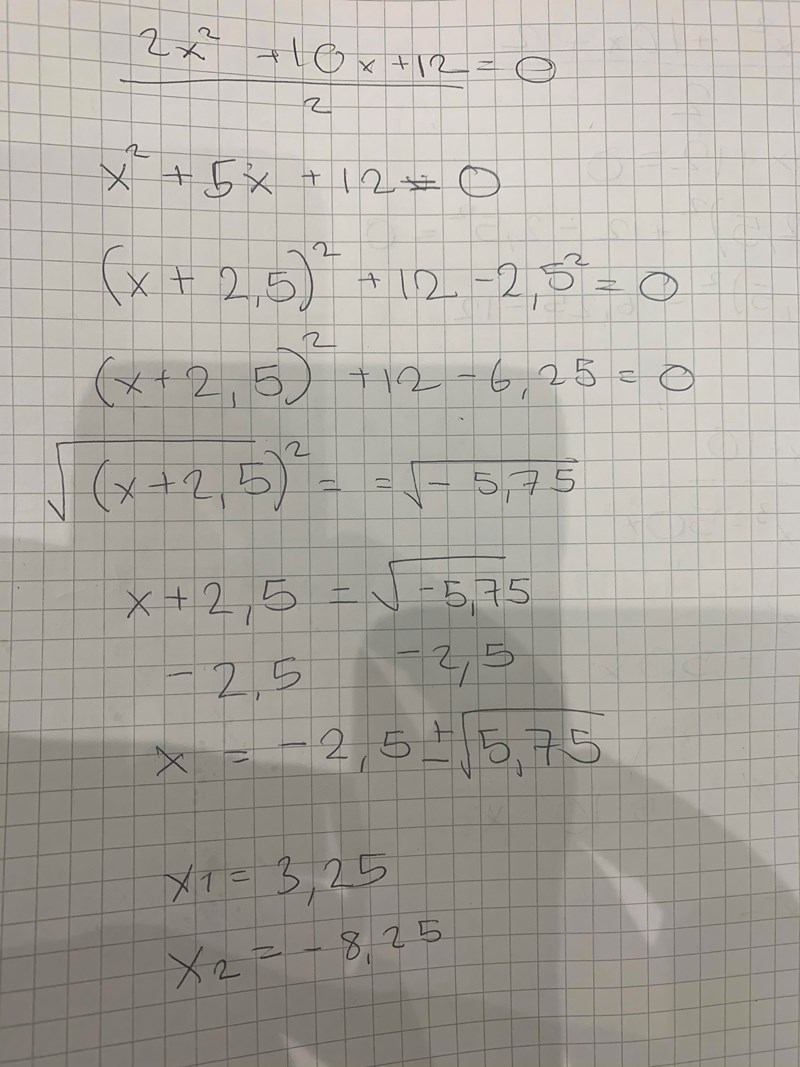 2x² +10x +12 = 0
2
x² + 5x + 12 = 0
(x + 2,5)² + 12 - 2,5² = 0
(x+2,5)² +12 - 6,25 = 0
√(x+2,5)² = = √- 5,75
x + 2,5 = √-5,75
- 2,5 - 2,5
x = - 2,5 ± √5,75
x1 = 3,25
x2 = - 8,25